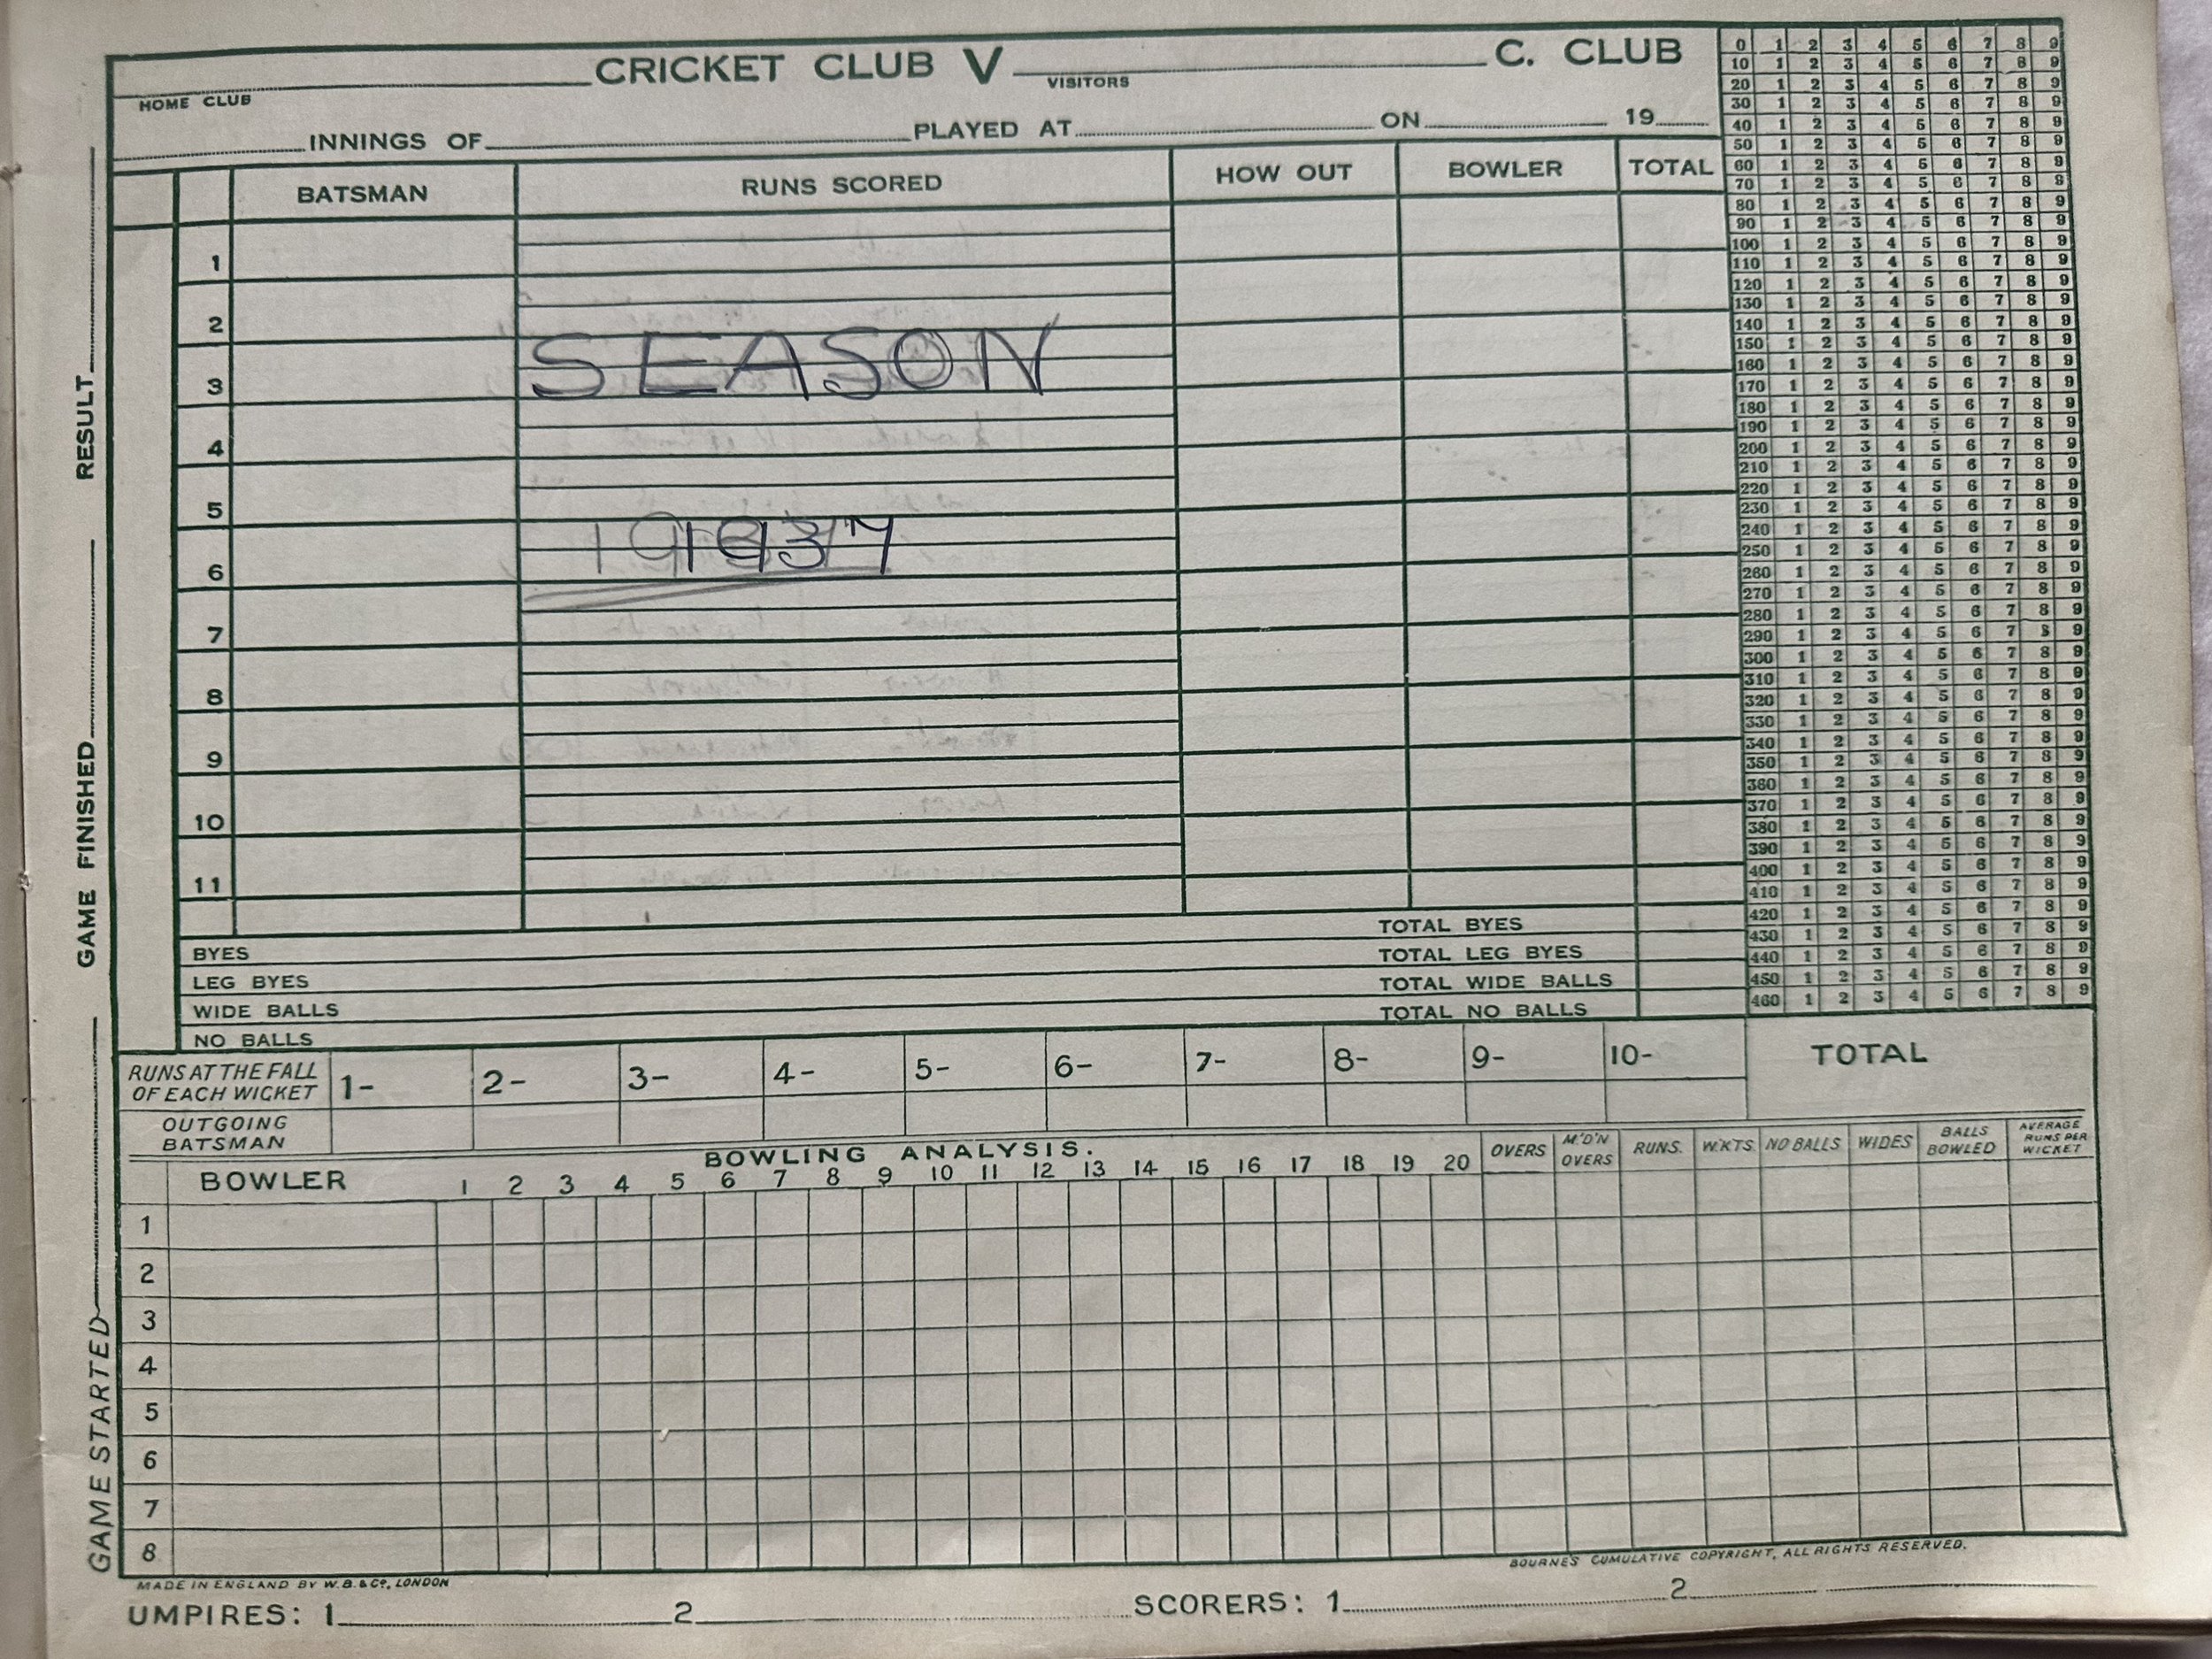 CRICKET CLUB V C. CLUB
HOME CLUB VISITORS
INNINGS OF PLAYED AT ON 19
BATSMAN RUNS SCORED HOW OUT BOWLER TOTAL
1
2
SEASON
3
4
5
1937
6
7
8
9
10
11
BYES TOTAL BYES
LEG BYES TOTAL LEG BYES
WIDE BALLS TOTAL WIDE BALLS
NO BALLS TOTAL NO BALLS
0 1 2 3 4 5 6 7 8 9
10 1 2 3 4 5 6 7 8 9
20 1 2 3 4 5 6 7 8 9
30 1 2 3 4 5 6 7 8 9
40 1 2 3 4 5 6 7 8 9
50 1 2 3 4 5 6 7 8 9
60 1 2 3 4 5 6 7 8 9
70 1 2 3 4 5 6 7 8 9
80 1 2 3 4 5 6 7 8 9
90 1 2 3 4 5 6 7 8 9
100 1 2 3 4 5 6 7 8 9
110 1 2 3 4 5 6 7 8 9
120 1 2 3 4 5 6 7 8 9
130 1 2 3 4 5 6 7 8 9
140 1 2 3 4 5 6 7 8 9
150 1 2 3 4 5 6 7 8 9
160 1 2 3 4 5 6 7 8 9
170 1 2 3 4 5 6 7 8 9
180 1 2 3 4 5 6 7 8 9
190 1 2 3 4 5 6 7 8 9
200 1 2 3 4 5 6 7 8 9
210 1 2 3 4 5 6 7 8 9
220 1 2 3 4 5 6 7 8 9
230 1 2 3 4 5 6 7 8 9
240 1 2 3 4 5 6 7 8 9
250 1 2 3 4 5 6 7 8 9
260 1 2 3 4 5 6 7 8 9
270 1 2 3 4 5 6 7 8 9
280 1 2 3 4 5 6 7 8 9
290 1 2 3 4 5 6 7 8 9
300 1 2 3 4 5 6 7 8 9
310 1 2 3 4 5 6 7 8 9
320 1 2 3 4 5 6 7 8 9
330 1 2 3 4 5 6 7 8 9
340 1 2 3 4 5 6 7 8 9
350 1 2 3 4 5 6 7 8 9
360 1 2 3 4 5 6 7 8 9
370 1 2 3 4 5 6 7 8 9
380 1 2 3 4 5 6 7 8 9
390 1 2 3 4 5 6 7 8 9
400 1 2 3 4 5 6 7 8 9
410 1 2 3 4 5 6 7 8 9
420 1 2 3 4 5 6 7 8 9
430 1 2 3 4 5 6 7 8 9
440 1 2 3 4 5 6 7 8 9
450 1 2 3 4 5 6 7 8 9
460 1 2 3 4 5 6 7 8 9
RUNS AT THE FALL
OF EACH WICKET 1- 2- 3- 4- 5- 6- 7- 8- 9- 10- TOTAL
OUTGOING
BATSMAN
BOWLING ANALYSIS.
BOWLER 1 2 3 4 5 6 7 8 9 10 11 12 13 14 15 16 17 18 19 20 OVERS M'D'N OVERS RUNS. W.KTS. NO BALLS WIDES BALLS BOWLED AVERAGE RUNS PER WICKET
1
2
3
4
5
6
7
8
MADE IN ENGLAND BY W.B. & Co, LONDON BOURNE'S CUMULATIVE COPYRIGHT, ALL RIGHTS RESERVED.
UMPIRES: 1 2 SCORERS: 1 2
GAME STARTED GAME FINISHED RESULT